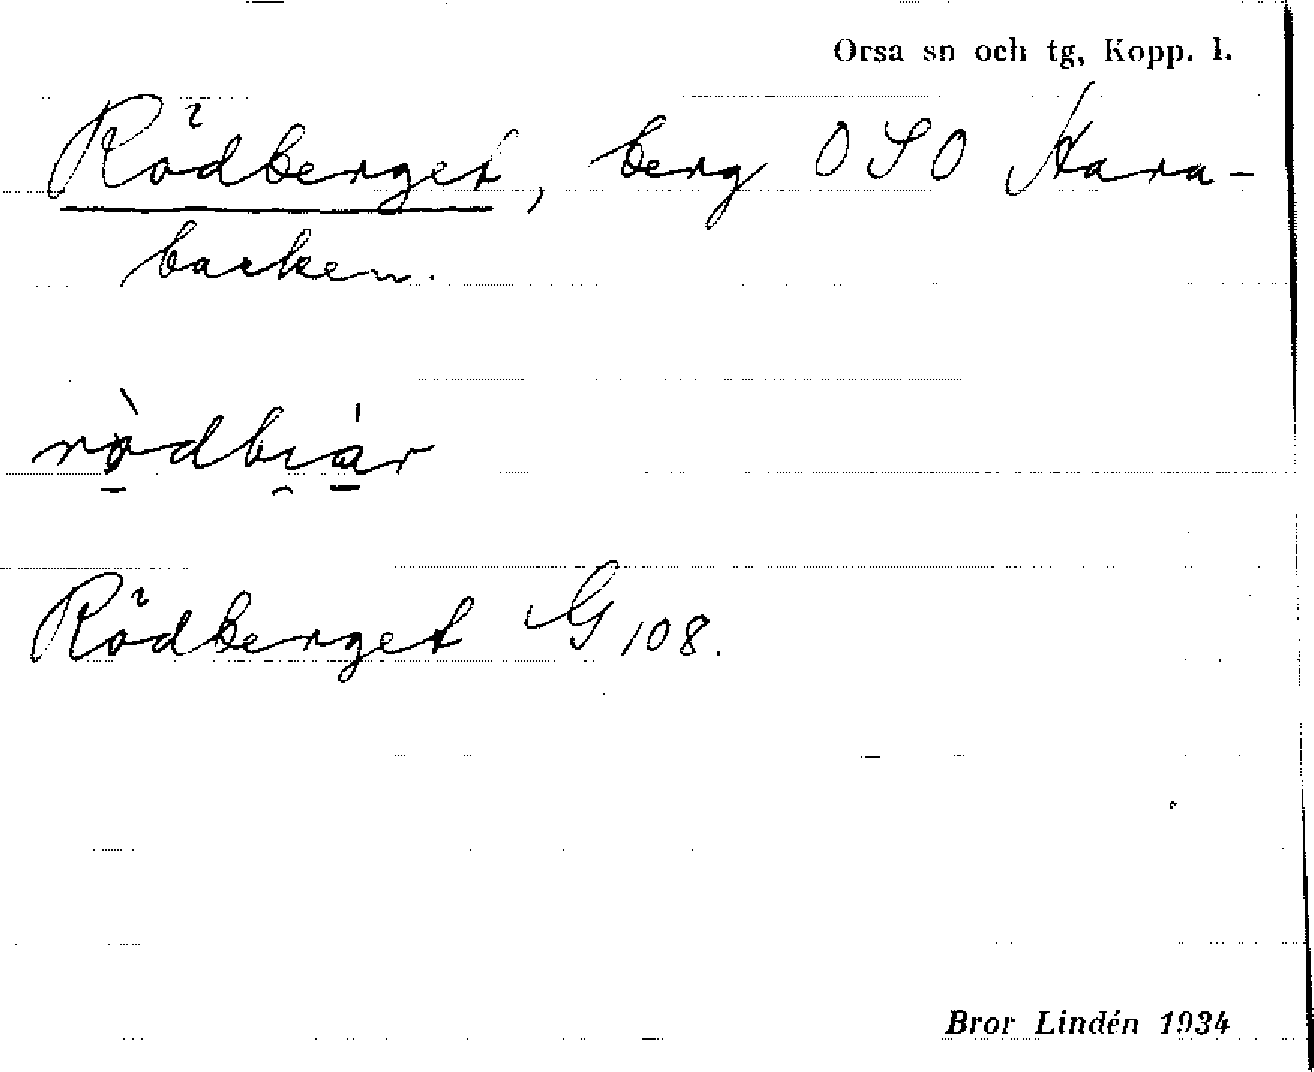 Orsa sn och tg, Kopp. l.
Rödberget, berg OSO Hara-
backen.
rö̀dbi̯a̍r
Rödberget G 108.
Bror Lindén 1934